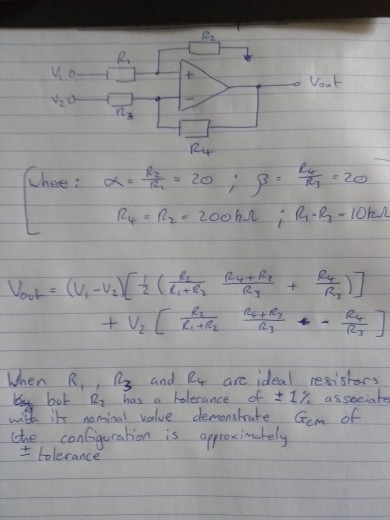 R2
R1
V1
+
Vout
V2
-
R3
R4
Where: α = R2/R1 = 20 ; β = R4/R3 = 20
R4 = R2 = 200kΩ ; R1 - R3 - 10kΩ
Vout = (V1 - V2) [ 1/2 ( R2/R1+R2 R4+R3/R3 + R4/R3 ) ]
+ V2 [ R2/R1+R2 R4+R3/R3 - R4/R3 ]
When R1, R3 and R4 are ideal resistors
but R2 has a tolerance of ±1% associate
with its nominal value demonstrate Gcm of
the configuration is approximately
± tolerance